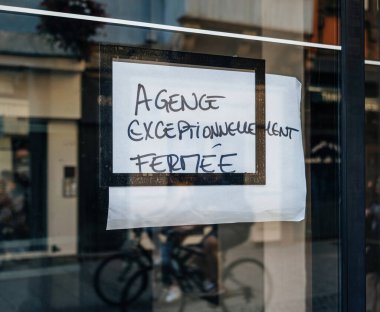 AGENCE
EXCEPTIONNELLEMENT
FERMÉE